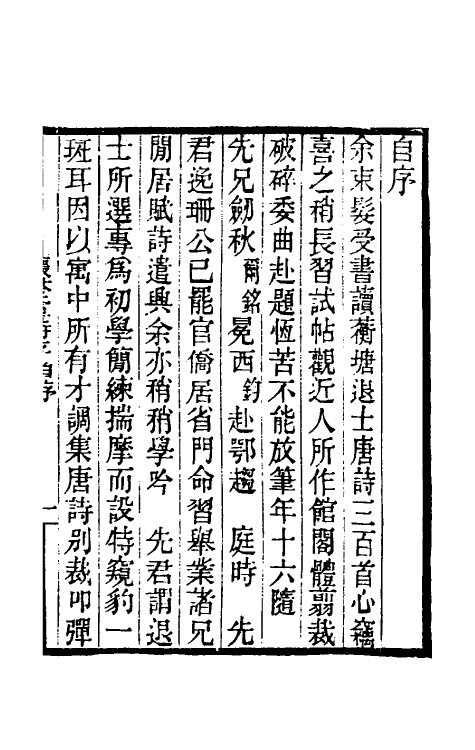 自序
余束髮受書讀蘅塘退士唐詩三百首心竊
喜之稍長習試帖觀近人所作館閣體翦裁
破碎委曲赴題恆苦不能放筆年十六隨
先兄劒秋爾銘冕西鈞赴鄂趨 庭時 先
君逸珊公已罷官僑居省門命習舉業諸兄
閒居賦詩遣興余亦稍稍學吟 先君謂退
士所選專爲初學簡練揣摩而設特窺豹一
斑耳因以寓中所有才調集唐詩別裁叩彈
自序 一